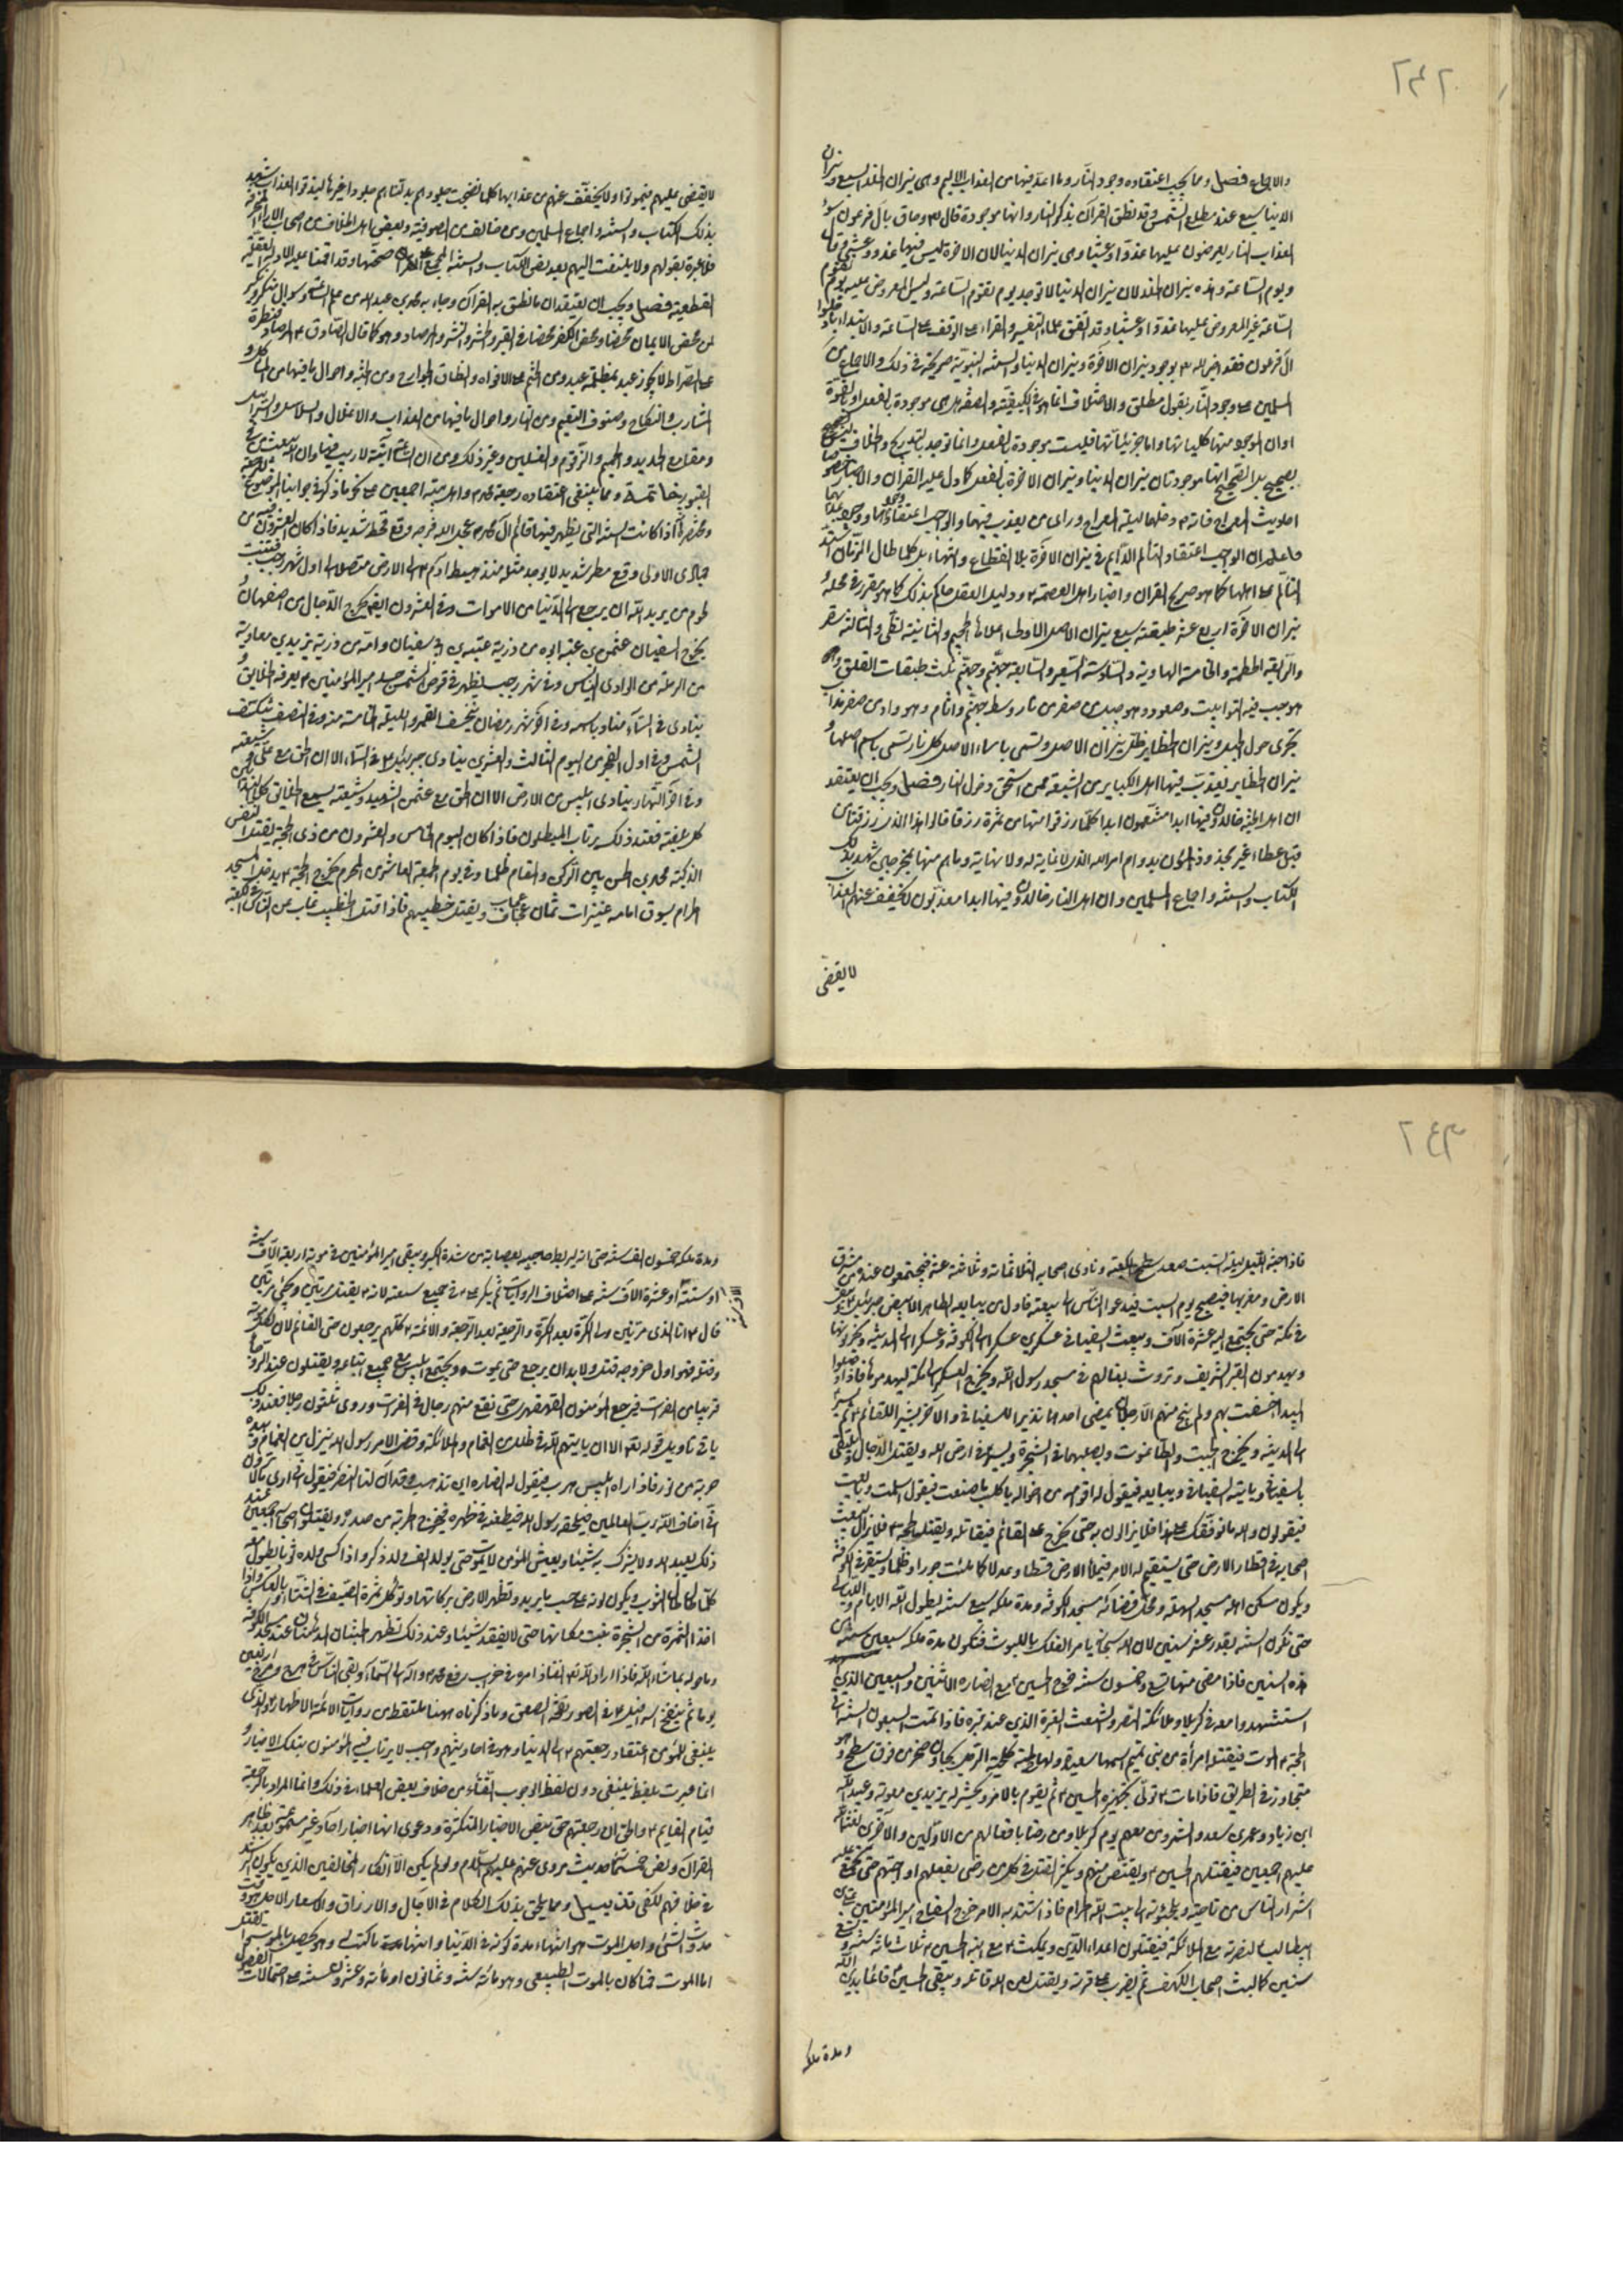 والاجماع فصل ومما يجب اعتقاده وجود النار وما اعد فيها من العذاب الاليم وهى نيران الخلد السبع ونيران
الدنيا سبع عند مطلع الشمس وقد نطق القرآن بذكر النار وانها موجودة قال تعالى وحاق بآل فرعون سوء
العذاب النار يعرضون عليها غدوا وعشيا وهى نيران الدنيا لان الاخرة ليس فيها غدو وعشى
ويوم الساعة وهذه نيران الخلد لان نيران الدنيا لا توجد يوم تقوم الساعة وليس المعروض عليه يوم تقوم
الساعة غير المعروض عليها غدوا وعشيا وقد اتفق علماء التفسير والقراء على الوقف على الساعة والابتداء بادخلوا
آل فرعون فقد اخبر الله بوجود نيران الآخرة ونيران الدنيا والسنة النبوية صريحة في ذلك والاجماع من
المسلمين على وجود النار بقول مطلق والاختلاف انما هو في الكيفية والصفة هى موجودة بالفعل او بالقوة
او ان الموجود منها كلياتها واما جزئياتها فليست موجودة بالفعل وانما توجد بالتدريج والخلاف ليس
بصحيح بل الصحيح انها موجودتان نيران الدنيا ونيران الاخرة بالفعل كما دل عليه القرآن والاخبار خصوصا
احاديث المعراج فانه دخلها ليلة المعراج وراى من يعذب فيها والواجب اعتقاد
فاعلم ان الواجب اعتقاد التألم الدائم في نيران الآخرة بلا انقطاع وانتهاء بل كلما طال الزمان اشتد
التألم على اهلها كما هو صريح القرآن واخبار اهل العصمة ودليل العقل حاكم بذلك كما هو مقرر في محله
نيران الآخرة اربع عشر طبقة سبع نيران الاصل الاولى اعلاها الجحيم والثانية لظى والثالثة سقر
والرابعة الحطمة والخامسة الهاوية والسادسة السعير والسابعة جهنم وجهنم ثلث طبقات الفلق وهو
جب فيه التوابيت وصعود وهو جبل من صفر من نار وسط جهنم واثام وهو وادى من صفر مذاب
يجرى حول الجبل ونيران الحظاير ظل نيران الاصل وتسمى باسماء الاصل كل نار تسمى باسم اصلها و
نيران الحظاير يعذب فيها اهل الكباير من الشيعة ممن استحق دخول النار فصل ويجب ان يعتقد
ان اهل الجنة خالدون فيها ابدا متنعمون ابدا كلما رزقوا منها من ثمرة رزقا قالوا هذا الذى رزقنا من
قبل عطاء غير مجذوذ خالدون بدوام امر الله الذى لا غاية له ولا نهاية وما هم منها بمخرجين شهد بذلك
الكتاب والسنة واجماع المسلمين وان اهل النار خالدون فيها ابدا معذبون لا يخفف عنهم العذاب
لا يقضى
لا يقضى عليهم فيموتوا ولا يخفف عنهم من عذابها كلما نضجت جلودهم بدلناهم جلودا غيرها ليذوقوا العذاب شهد
بذلك الكتاب والسنة واجماع المسلمين ومن خالف من الصوفية وبعض اهل الخلاف من اصحاب الاراء
فلا عبرة بقولهم ولا يلتفت اليهم بعد نص الكتاب والسنة المجمع على صحتها وقد اقمنا عليه الادلة العقلية
القطعية فصل ويجب ان يعتقد ان ما نطق به القرآن وجاء به محمد بن عبد الله من علم الساعة وسؤال منكر ونكير
لمن محض الايمان محضا ومحض الكفر محضا في القبر والحشر والنشر والمرصاد وهو كما قال الصادق المرصاد قنطرة
على الصراط لا يجوز عبد بمظلمة عبد ومن الختم على الافواه وانطاق الجوارح ومن الجنة واحوال ما فيها من المآكل و
المشارب والنكاح وصنوف النعيم ومن النار واحوال ما فيها من العذاب والاغلال والسلاسل والسرابيل
ومقامع الحديد والحميم والزقوم والغسلين وغير ذلك ومن ان الساعة آتية لا ريب فيها وان الله يبعث من في
القبور خاتمة ومما ينبغى اعتقاده رجعة محمد واهل بيته اجمعين على نحو ما ذكرنا في جوابنا الموضوع للرجعة
ومختصره اذا كانت السنة التى يظهر فيها قائم آل محمد عجل الله فرجه وقع قحط شديد فاذا كان العشرون من
جمادى الاولى وقع مطر شديد لا يوجد مثله منذ هبط آدم الى الارض متصلا الى اول شهر رجب تنبت
لحوم من يريد الله ان يرجع الى الدنيا من الاموات وفي العشر الاول منه ايضا يخرج الدجال من اصفهان و
يخرج السفيانى عثمن بن عنبسة ابوه من ذرية عتبة بن ابي سفيان وامه من ذرية يزيد بن معاوية
من الرملة من الوادى اليابس وفي شهر رجب يظهر في قرص الشمس جسد امير المؤمنين يعرفه الخلايق و
ينادى في السماء مناد باسمه وفي آخر شهر رمضان ينخسف القمر والليلة الخامسة منه وفي النصف تنكسف
الشمس وفي اول الفجر من اليوم الثالث والعشرين ينادى جبرئيل في السماء الا ان الحق مع على وشيعته
وفي آخر النهار ينادى ابليس من الارض الا ان الحق مع عثمن الشهيد وشيعته يسمع الخلائق كلا النداءين
كل بلغته فعند ذلك يرتاب المبطلون فاذا كان اليوم الخامس والعشرون من ذى الحجة يقتل النفس
الزكية محمد بن الحسن بين الركن والمقام ظلما وفي يوم الجمعة العاشر من المحرم يخرج الحجة يدخل المسجد
الحرام يسوق امامه عنيزات ثمان عجاف ويقتل خطيبهم فاذا قتل الخطيب غاب عن الناس في الكعبة
فاذا جنه الليل ليلة السبت صعد سطح الكعبة ونادى اصحابه الثلاثمائة وثلاثة عشر فيجتمعون عنده من مشرق
الارض ومغربها فيصبح يوم السبت فيدعو الناس الى بيعته فاول من يبايعه الطاير الابيض جبرئيل
في مكة حتى يجتمع اليه عشرة آلاف ويبعث السفيانى عسكرين عسكرا الى الكوفة وعسكرا الى المدينة ويخربونها
ويهدمون القبر الشريف وتروث بغالهم في مسجد رسول الله ويخرج العسكر الى مكة ليهدموها فاذا وصلوا
البيداء خسفت بهم ولم ينج منهم الا رجلان يمضى احدهما نذيرا للسفيانى والآخر بشيرا للقائم ثم يسير
الى المدينة ويخرج الجبت والطاغوت ويصلبهما في الشجرة ويسير في ارض الله ويقتل الدجال ويلتقى
بالسفيانى ويأتيه السفيانى ويبايعه فيقول له اقوامه من اخواله يا كلب ما صنعت فيقول اسلمت وبايعت
فيقولون والله ما نوافقك على هذا فلا يزالون به حتى يخرج على القائم فيقاتله ويقتله الحجة فلا يزال يبعث
اصحابه في اقطار الارض حتى يستقيم له الامر فيملأ الارض قسطا وعدلا كما ملئت جورا وظلما ويستقر في الكوفة
ويكون مسكن اهله مسجد السهلة ومحل قضائه مسجد الكوفة ومدة ملكه سبع سنين يطول الله الايام والليالى
حتى تكون السنة بقدر عشر سنين لان الله سبحانه يأمر الفلك باللبوث فتكون مدة ملكه سبعين سنة من
هذه السنين فاذا مضى منها تسع وخمسون سنة خرج الحسين مع انصاره الاثنين والسبعين الذين
استشهدوا معه في كربلا وملائكة النصر والشعث الغبر الذين عند قبره فاذا تمت السبعون السنة اتى
الحجة الموت فتقتله امرأة من بنى تميم اسمها سعيدة ولها لحية كلحية الرجل بجاون صخر من فوق سطح وهو
متجاوز في الطريق فاذا مات تولى تجهيزه الحسين ثم يقوم بالامر ويحشر له يزيد بن معوية وعبيد الله
ابن زياد وعمر بن سعد والشمر ومن معهم يوم كربلا ومن رضى بافعالهم من الاولين والآخرين لعنة الله
عليهم اجمعين فيقتلهم الحسين ويقتص منهم ويكثر القتل في كل من رضى بفعلهم او احبهم حتى يجتمع عليه
اشرار الناس من كل ناحية ويلجئونه الى بيت الله الحرام فاذا اشتد به الامر خرج السفاح امير المؤمنين على بن
ابيطالب لنصرته مع الملائكة فيقتلون اعداء الدين ويمكث مع ابنه الحسين ثلاث مائة سنة وتسع
سنين كما لبث اصحاب الكهف ثم يضرب على قرنه ويقتل لعن الله قاتله ويبقى الحسين قائما بدين الله
ومدة ملكه
ومدة ملكه خمسون الف سنة حتى انه ليربط حاجبيه بعصابة من شدة الكبر ويبقى امير المؤمنين في موته اربعة آلاف سنة
او ستة او عشرة آلاف سنة على اختلاف الروايات ثم يكر في جميع شيعته لانه يقتل مرتين ويحيى مرتين
قال انا الذى اقتل مرتين ولى الكرة بعد الكرة والرجعة بعد الرجعة والائمة كلهم يرجعون حتى القائم لان لكل مؤمن موتة
وقتلة فهو اول خروجه قتل ولا بد ان يرجع حتى يموت ويجتمع ابليس مع جميع اتباعه ويقتلون عند الروحا
قريبا من الفرات فيرجع المؤمنون القهقرى حتى تقع منهم رجال في الفرات وروى ثلثون رجلا فعند ذلك
يأتى تأويل قوله تعالى الا ان يأتيهم الله في ظلل من الغمام والملائكة وقضى الامر رسول الله ينزل من الغمام وبيده
حربة من نور فاذا رآه ابليس هرب فيقول له انصاره اين تذهب وقد آن لنا النصر فيقول انى ارى ما لا ترون
انى اخاف الله رب العالمين فيلحقه رسول الله فيطعنه في ظهره فيخرج الحربة من صدره ويقتلون اصحابه اجمعين وعند
ذلك يعبد الله ولا يشرك به شيئا ويعيش المؤمن لا يموت حتى يولد له الف ولد ذكر واذا كسى ولده ثوبا يطول معه
كلما طال طال الثوب ويكون لونه على حسب ما يريد وتظهر الارض بركاتها وتؤكل ثمرة الصيف في الشتاء وبالعكس واذا
اخذ الثمرة من الشجرة نبت مكانها حتى لا يفقد شيئا وعند ذلك تظهر الجنتان المدهامتان عند مسجد الكوفة
وما حوله بما شاء الله فاذا اراد الله تعالى انفاذ امره في خراب العالم رفع محمدا وآله الى السماء وبقى الناس في هرج ومرج اربعين
يوما ثم ينفخ اسرافيل في الصور نفخة الصعق وما ذكرناه ههنا ملتقط من روايات الائمة الاطهار والذى
ينبغى للمؤمن اعتقاد رجعتهم الى الدنيا وهو في احاديثهم واجب لا يرتاب فيه المؤمنون بتلك الاخبار و
انما عبرت بلفظ ينبغى دون لفظ الوجوب اتقاء من خلاف بعض العلماء في ذلك وانما المراد بالرجعة
قيام القايم والحق ان رجعتهم حق بنص الاخبار المتكثرة ودعوى انها اخبار آحاد غير مسموعة بعد ظاهر
القرآن ونص خمسمأة حديث مروى عنهم عليهم السلام ولو لم يكن الا انكار المخالفين الذين يكون الرشد
في خلافهم لكفى قتف بسيل ومما يلحق بذلك الكلام في الآجال والارزاق والاسعار الاجل هو وقت
حدوث الشئ واجل الموت هو انتهاء مدة كونه في الدنيا وانتهائه ما كتب له وهو يحصل بالموت او بالقتل
اما الموت فما كان بالموت الطبيعى وهو مائة سنة وثمانون او مائة وعشرون سنة على احتمالات